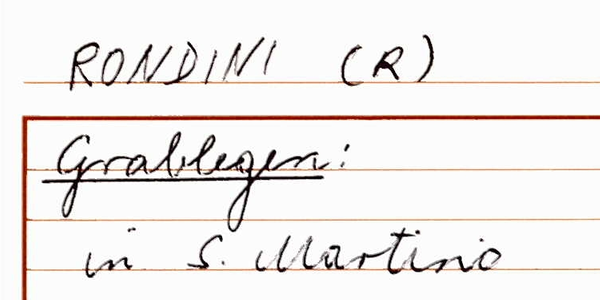 RONDINI (R)
Grablegen:
in S. Martino